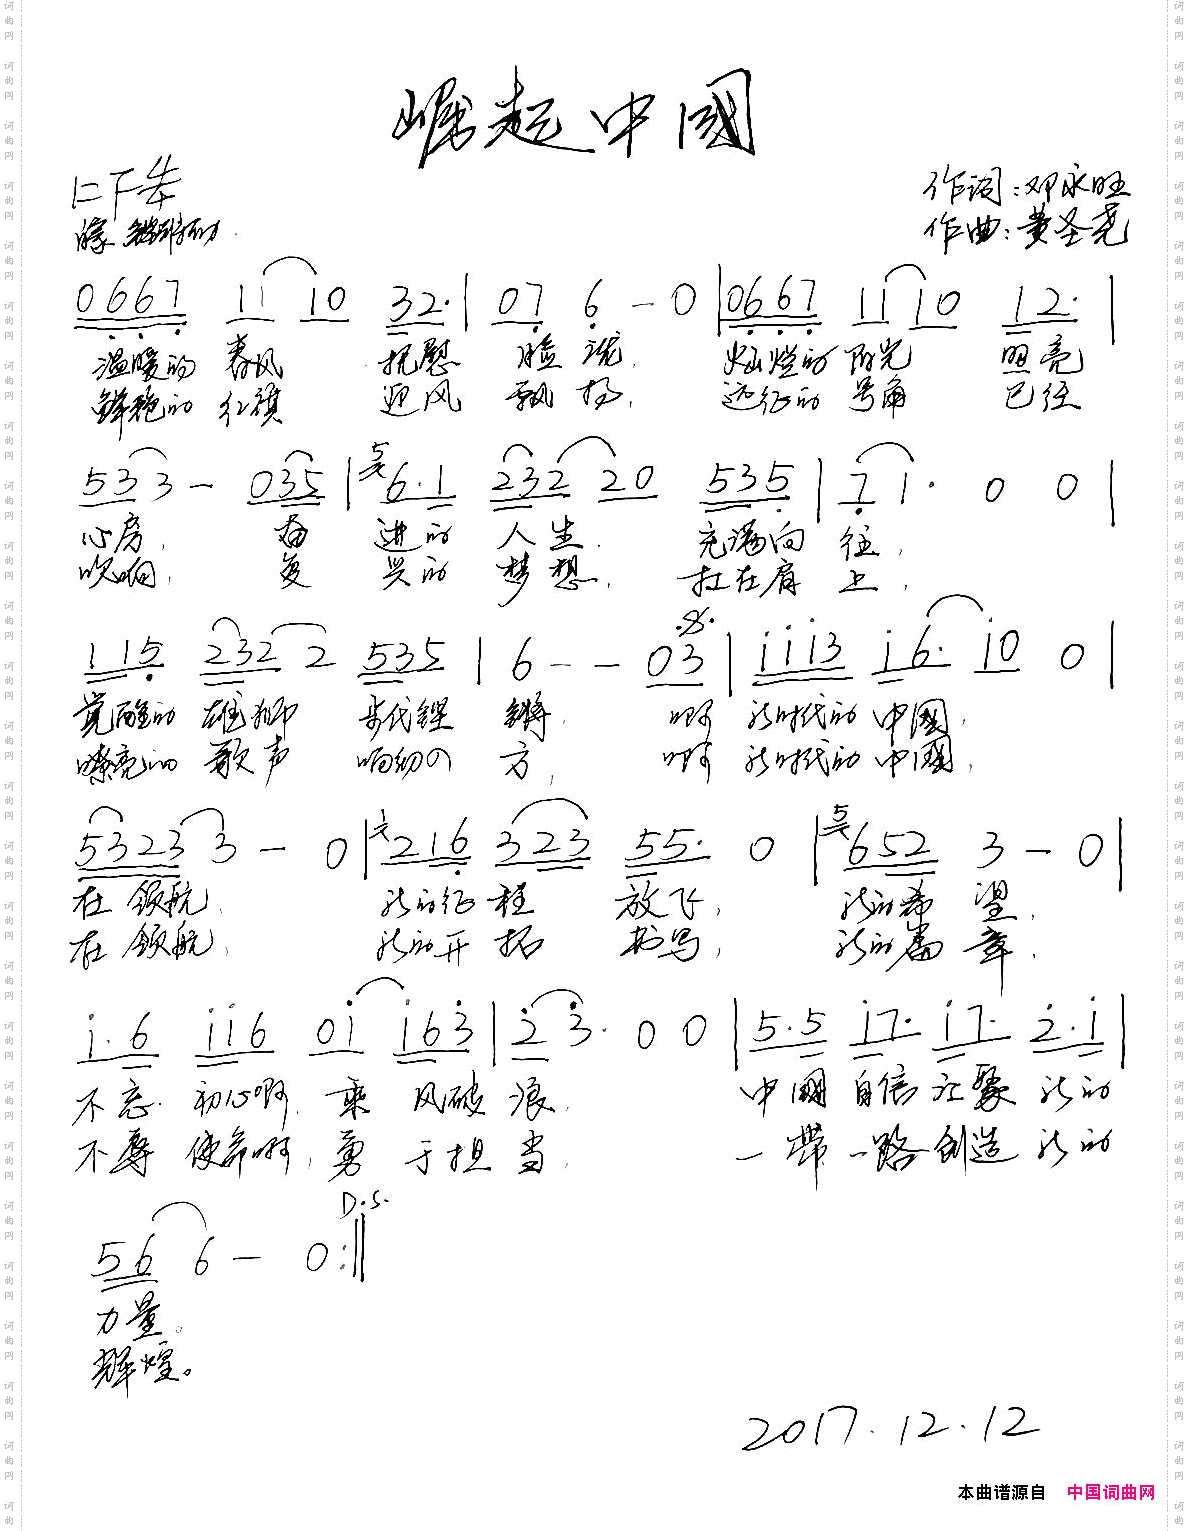 崛起中國
作词：邓永旺
作曲：黄圣尧
0667 11 10 32· | 07 6 - 0 | 0667 11 10 12· |
温暖的 春风 抚慰 脸 庞， 灿烂的 阳光 照亮
鲜艳的 红旗 迎风 飘 扬， 远征的 号角 已经
533 - 035 | 6·1 232 20 535 | 7 1· 0 0 |
心房， 奋 进的 人生， 充满向 往，
吹响， 复 兴的 梦想， 扛在肩 上，
115 232 2 535 | 6 - - 03 | 1113 16· 10 0 |
觉醒的 雄狮 步伐铿 锵， 啊 新时代的 中國，
嘹亮的 歌声 响彻四 方， 啊 新时代的 中國，
5323 3 - 0 | 216 323 55· 0 | 652 3 - 0 |
在 领航， 新的征 程 放飞， 新的希 望，
在 领航， 新的开 拓 书写， 新的篇 章，
1·6 116 01 163 | 2 3· 0 0 | 5·5 17· 17· 2·1 |
不忘 初心啊，乘 风破 浪， 中國 自信 让聚 新的
不辱 使命啊，勇 于担 当， 一带 一路 创造 新的
D.S.
56 6 - 0 :||
力量。
辉煌。
2017.12.12
本曲谱源自 中国词曲网